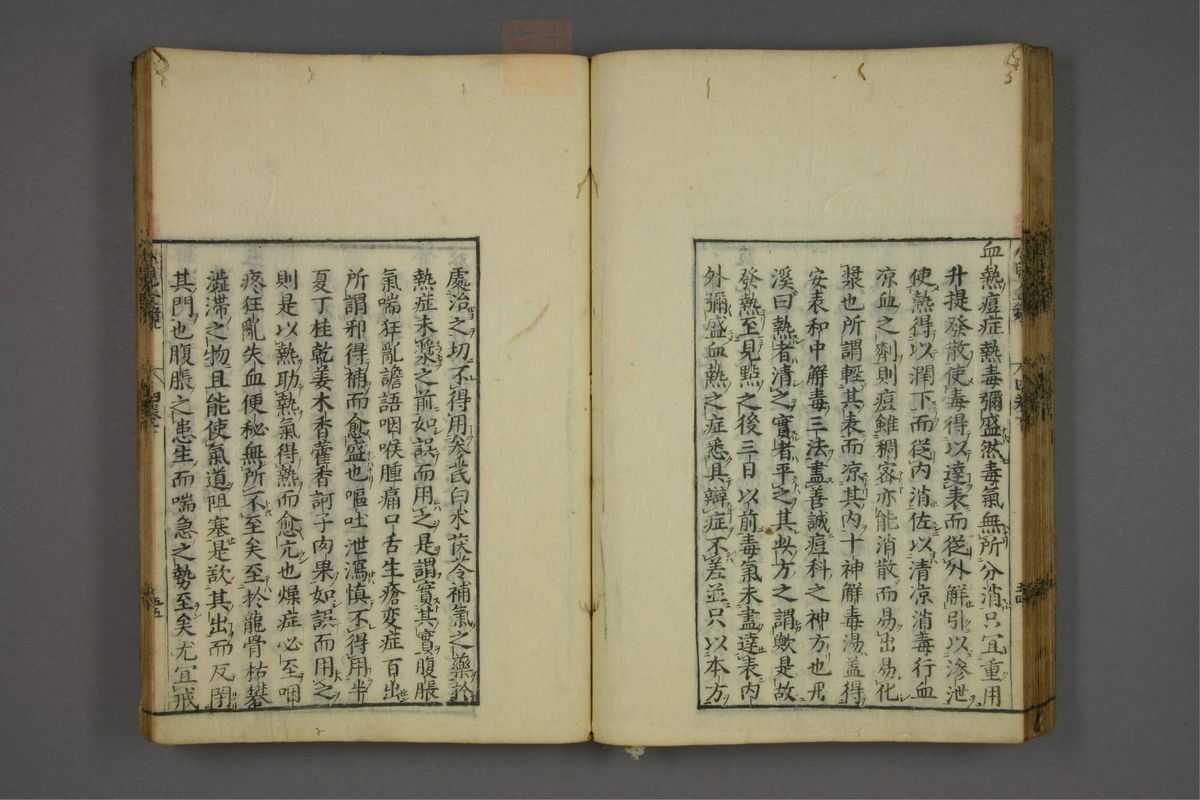 血熱痘症熱毒彌盛然毒氣無所分消只宜重用
升提發散使毒得以達表而從外解引以滲泄
使熱得以潤下而從内消佐以清凉消毒行血
凉血之劑則痘雖稠密亦能消散而易出易化
漿也所謂輕其表而凉其内十神解毒湯蓋得
安表和中解毒三法盡善誠痘科之神方也丹
溪曰熱者清之實者平之其此方之謂歟是故
發熱至見點之後三日以前毒氣未盡達表内
外彌盛血熱之症悉具辯症不差並只以本方
處治之切不得用參芪白术茯苓補氣之藥於
熱症未漿之前如誤而用之是謂實其實腹脹
氣喘狂亂譫語咽喉腫痛口舌生瘡変症百出
所謂邪得補而愈盛也嘔吐泄瀉慎不得用半
夏丁桂乾姜木香藿香訶子肉果如誤而用之
則是以熱助熱氣得熱而愈亢也燥症必至咽
疼狂亂失血便秘無所不至矣至於龍骨枯礬
澁滯之物且能使氣道阻塞是欲其出而反閉
其門也腹脹之患生而喘急之勢至矣尤宜戒